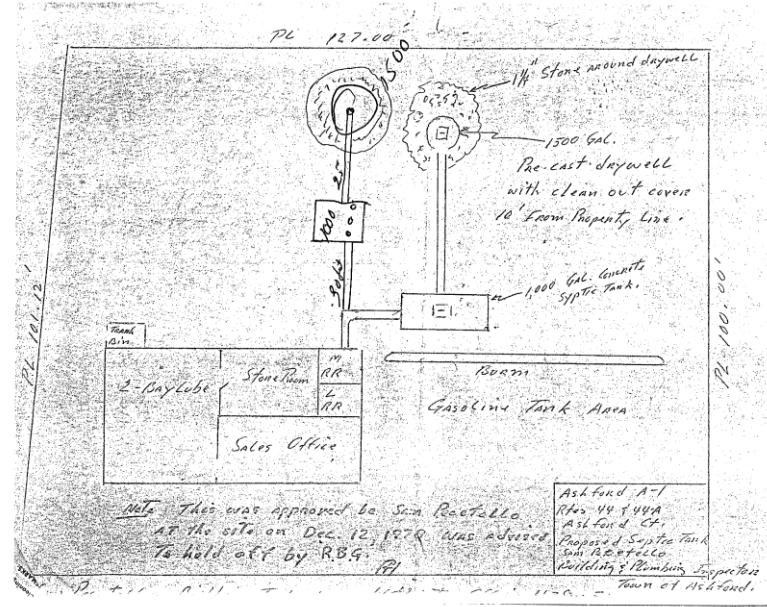 PL 127.00'
1500
1 1/4" Stone around drywell
1500 GAL.
Pre-cast drywell
with clean out cover
10' From Property Line.
25'
1000
1,000 GAL. Concrete
Syptic Tank.
PL 101.12'
PL 100.00'
Trash
Bin
2-Bay Lube
Store Room
M
RR
L
RR
Sales Office
Burm
Gasoline Tank Area
Note: This was approved be Sam
AT the site on Dec. 12, was advised
To hold off by R.B.G.
Ashford A-1
Rtes 44 & 44A
Ashford Ct.
Proposed Septic Tank
Sam
Building & Plumbing Inspector
Town of Ashford.